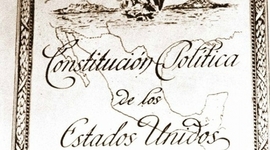 Constitución Política
de los
Estados Unidos